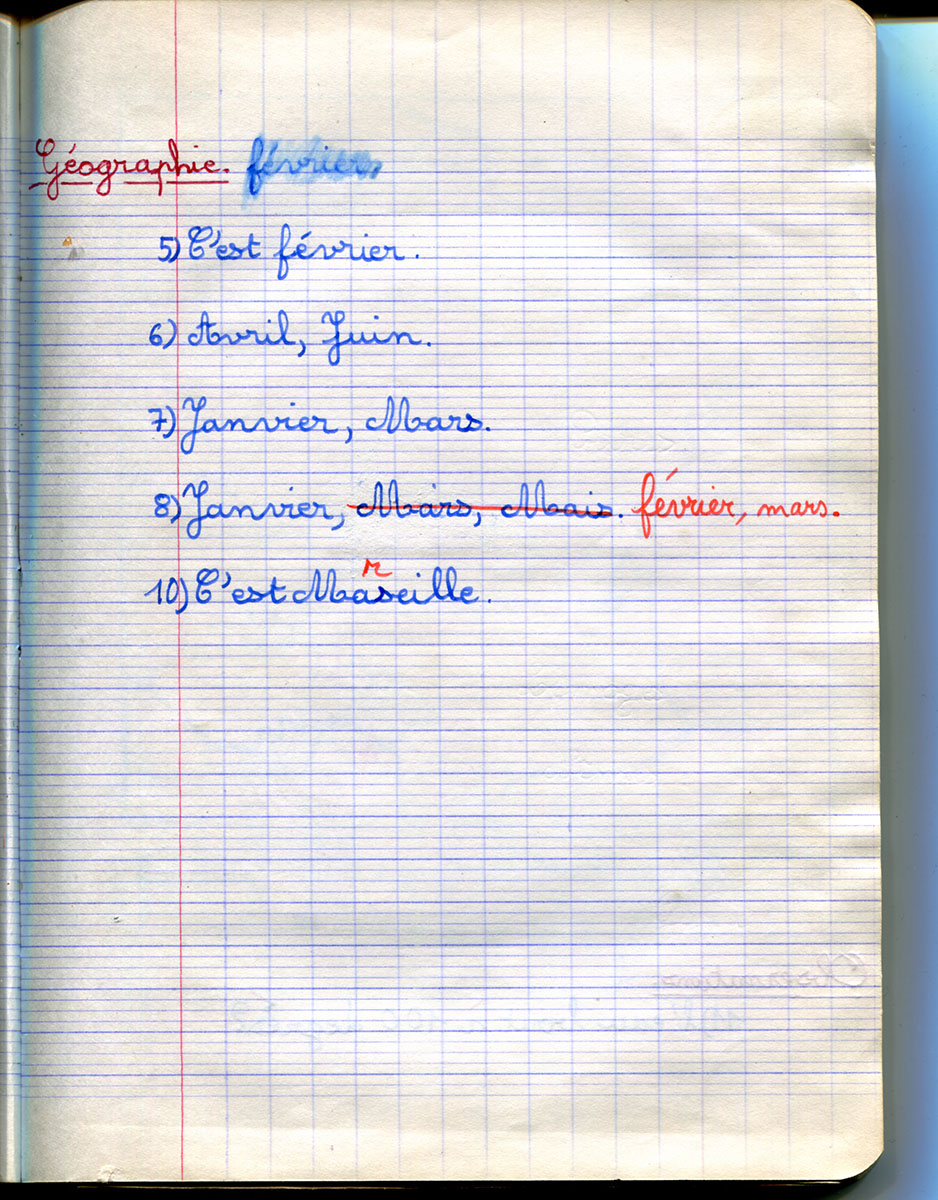 Géographie. février.
5) C'est février.
6) Avril, Juin.
7) Janvier, Mars.
8) Janvier, Mars, Mais. février, mars.
r
10) C'est Maseille.